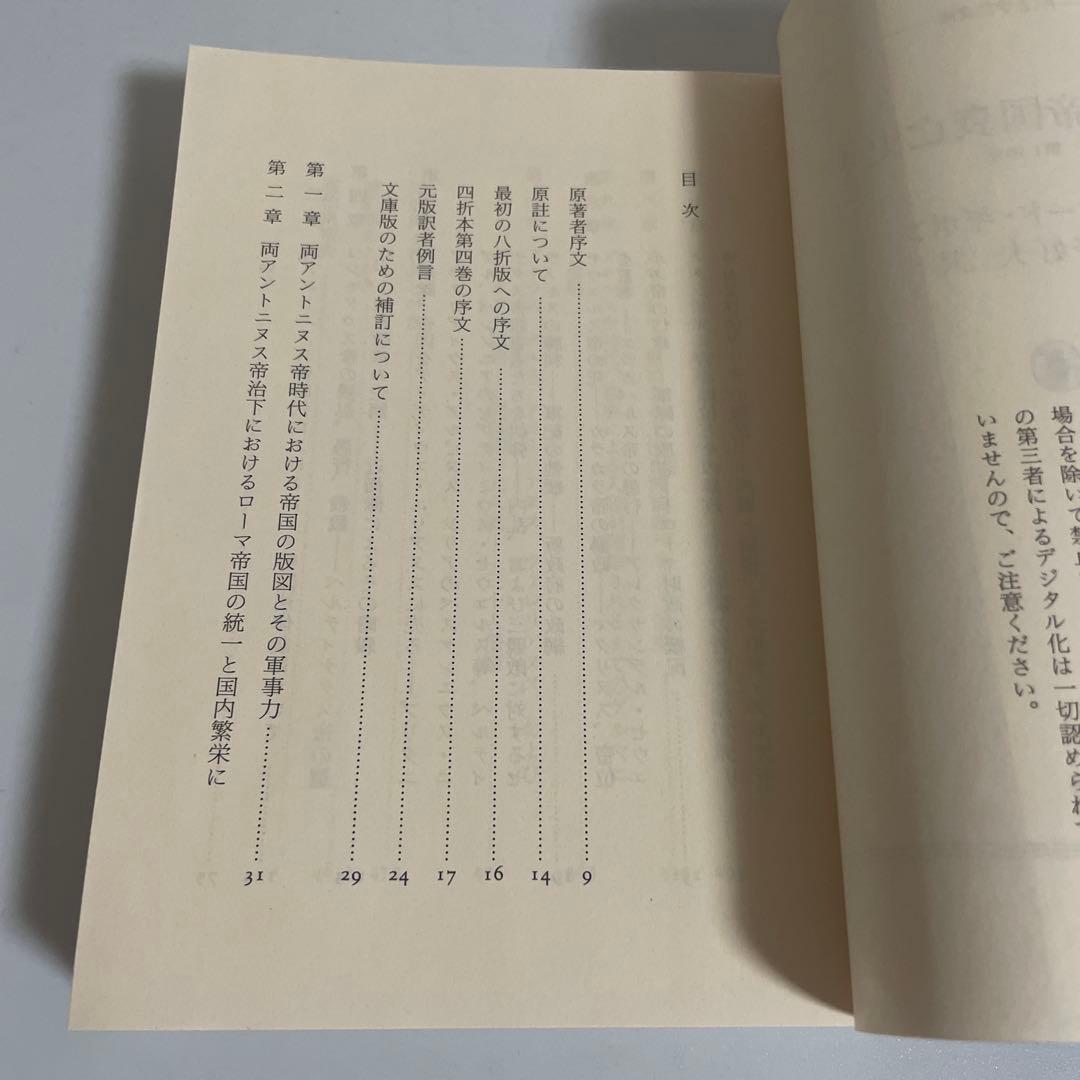 場合を除いて禁止
の第三者によるデジタル化は一切認められ
いませんので、ご注意ください。
目次
原著者序文 9
原註について 14
最初の八折版への序文 16
四折本第四巻の序文 17
元版訳者例言 24
文庫版のための補訂について 29
第一章 両アントニヌス帝時代における帝国の版図とその軍事力 31
第二章 両アントニヌス帝治下におけるローマ帝国の統一と国内繁栄に